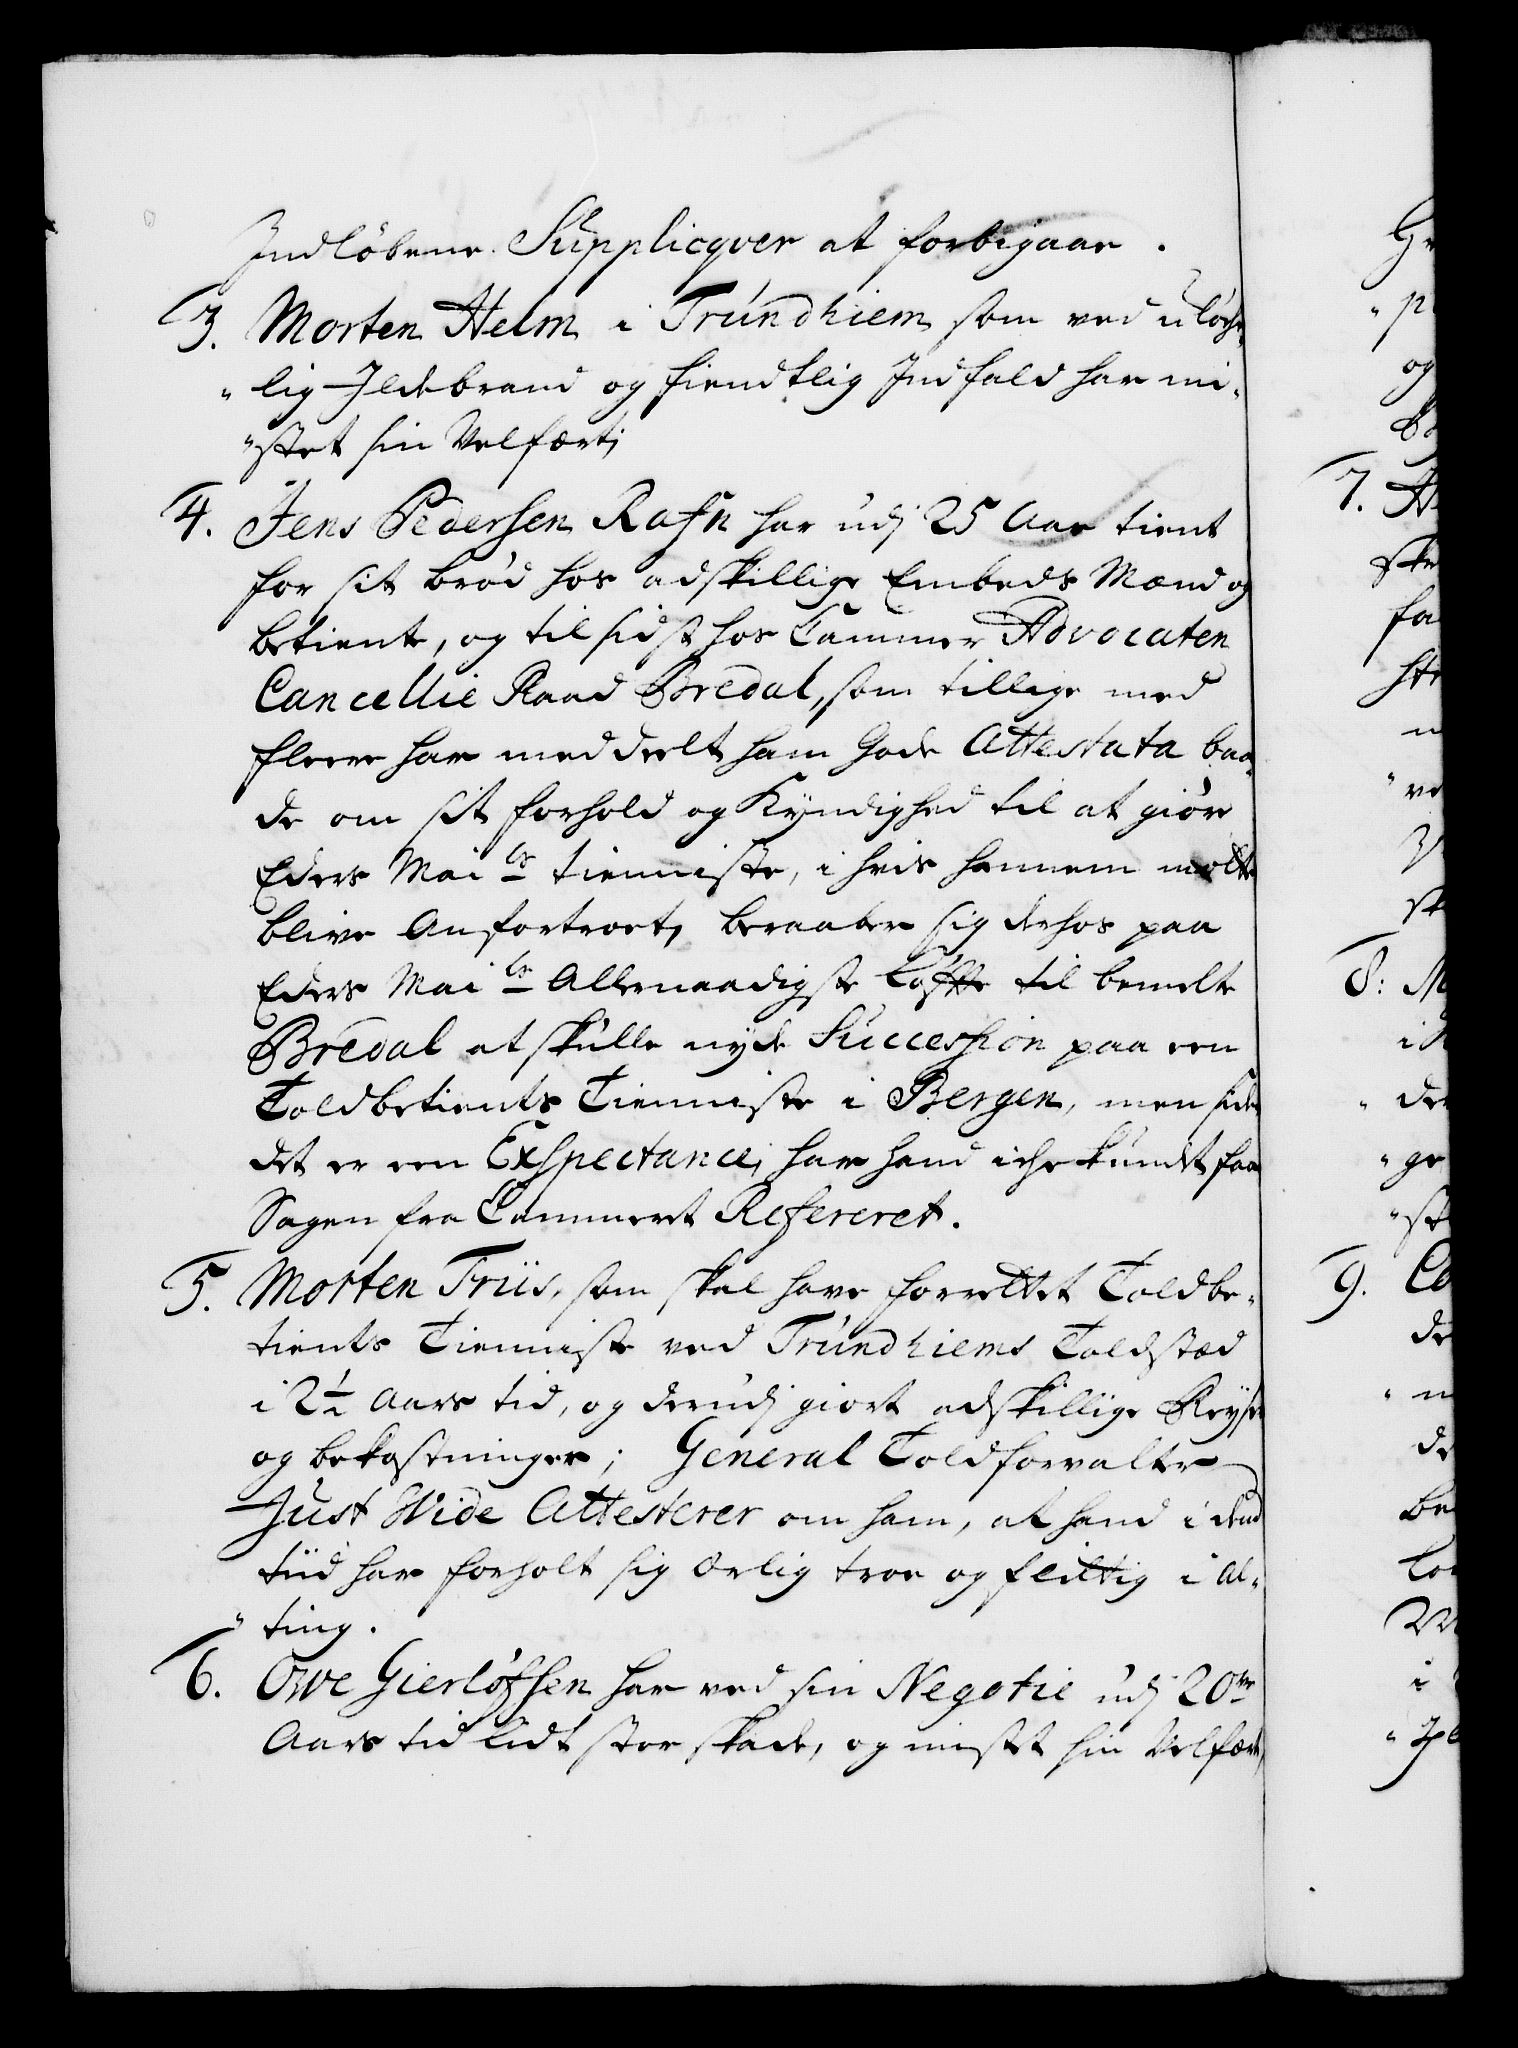 Indløbene Supplicqver at forbigaae.
3. Morten Helm i Trundhiem som ved uløche-
" lig Ildebrand og fiendtlig Indfald har mi-
" stet sin Velfært;
4. Jens Pedersen Rafn har udj 25 Aar tient
for sit brød hos adskillige Embeds Mænd og
betiente, og til sidst hos Cammer Advocaten
Cancellie Raad Bredal, som tillige med
fleere har meddeelt ham gode Attestata baa-
de om sit forhold og Kyndighed til at giøre
Eders Mai ts tienniste, i hvis hannem motte
blive Anfortroet, beraaber sig derhos paa
Eders Mai ts Allernaadigste Løffte til bemelte
Bredal at skulle nyde Succession paa een
Toldbetients Tienniste i Bergen, men siden
det er een Exspectance, har hand iche kundet faae
Sagen fra Cammeret Refereret.
5. Morten Friis, som skal have forrettet Toldbe-
tients Tienniste ved Trundhiems Toldstæd
i 2½ Aars tid, og derudj giort adskillige Reyser
og bekostninger; General Toldforvalter
Just Wide Attesterer om ham, at hand i dend
tiid har forholt sig ærlig troe og flittig i Al-
" ting.
6. Owe Gierløfsen har ved sin Negotie udj 20ve
Aars tid lidt stor skade, og mistet sin Velfært,
7.
8:
9.